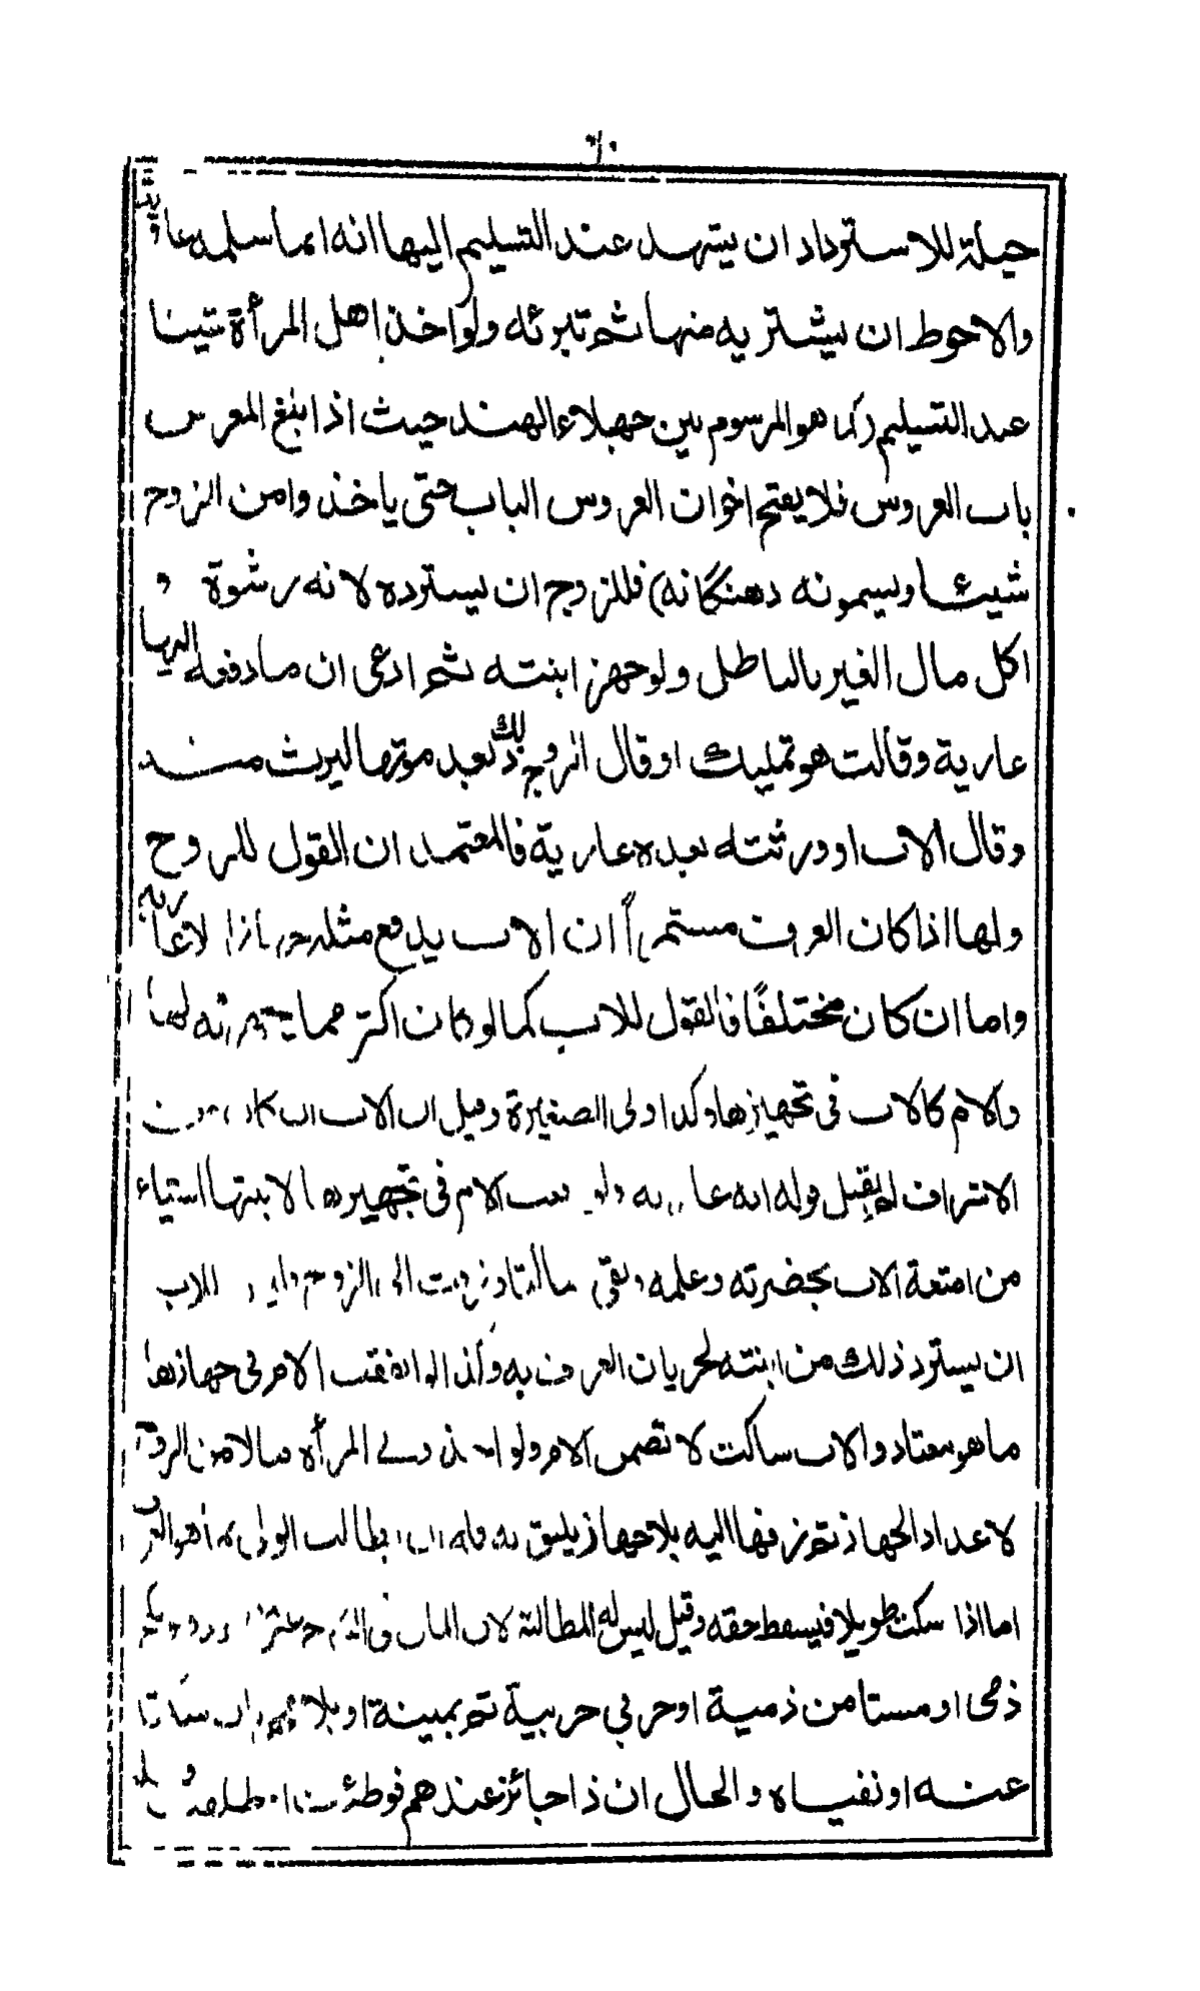 حيلة للاسترداد ان يشهد عند التسليم اليها انه انما سلمه عارية
والاحوط ان يشتريه منها ثم تبرئه ولو اخذ اهل المرأة شيئا
عند التسليم (كما هو المرسوم بين جهلاء الهند حيث اذا بلغ المعرس
باب العروس فلا يفتح اخوان العروس الباب حتى ياخذوا من الزوج
شيئا ويسمونه دهنگانه) فللزوج ان يسترده لانه رشوة و
اكل مال الغير بالباطل ولو جهز ابنته ثم ادعى ان ما دفعه اليها
عارية وقالت هو تمليك او قال الزوج ذلك بعد موتها ليرث منه
وقال الاب او ورثته بعده عارية فالمعتمد ان القول للزوج
ولها اذا كان العرف مستمراً ان الاب يدفع مثله جهازا لا عارية
واما ان كان مختلفًا فالقول للاب كما لو كان اكثر مما يجهز به مثلها
والام كالاب في تجهيزها وكذا ولي الصغيرة وقيل ان الاب ان كان من
الاشراف لم يقبل قوله انه عارية ولو دفعت الام في تجهيزها لابنتها اشياء
من امتعة الاب بحضرته وعلمه وبقي ساكتا وزفت الى الزوج فليس للاب
ان يسترد ذلك من ابنته لجريان العرف به وكذا لو انفقت الام في جهازها
ما هو معتاد والاب ساكت لا تضمن الام ولو اخذ ولي المرأة مالا من الزوج
لاعداد الجهاز ثم زفها اليه بلا جهاز يليق به فله ان يطالب الولي بما هو العرف
اما اذا سكت طويلا فيسقط حقه وقيل ليس له المطالبة لان المال في النكاح
ذمي او مستامن ذمية او حربي حربية ثم بميتة او بلا مهر بان سكتا
عنه او نفياه والحال ان ذا جائز عندهم فوطئت او طلقت